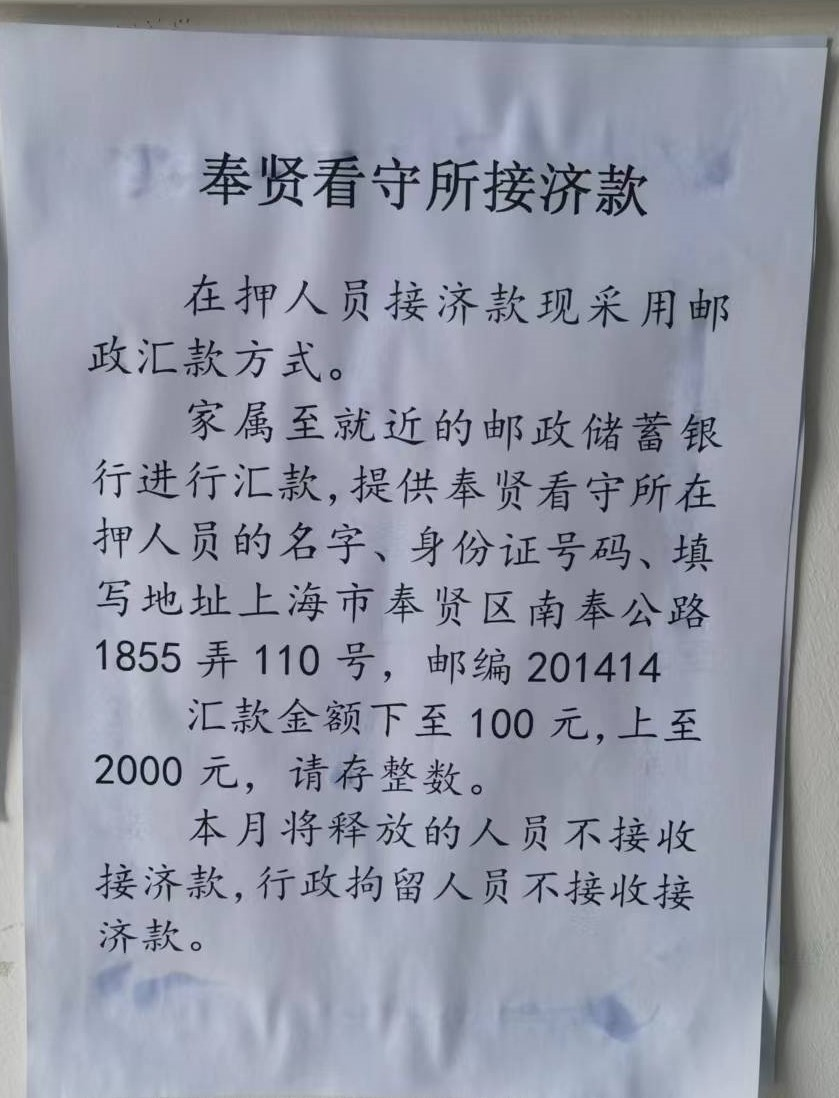 奉贤看守所接济款
在押人员接济款现采用邮
政汇款方式。
家属至就近的邮政储蓄银
行进行汇款,提供奉贤看守所在
押人员的名字、身份证号码、填
写地址上海市奉贤区南奉公路
1855 弄 110 号，邮编 201414
汇款金额下至 100 元,上至
2000 元，请存整数。
本月将释放的人员不接收
接济款,行政拘留人员不接收接
济款。